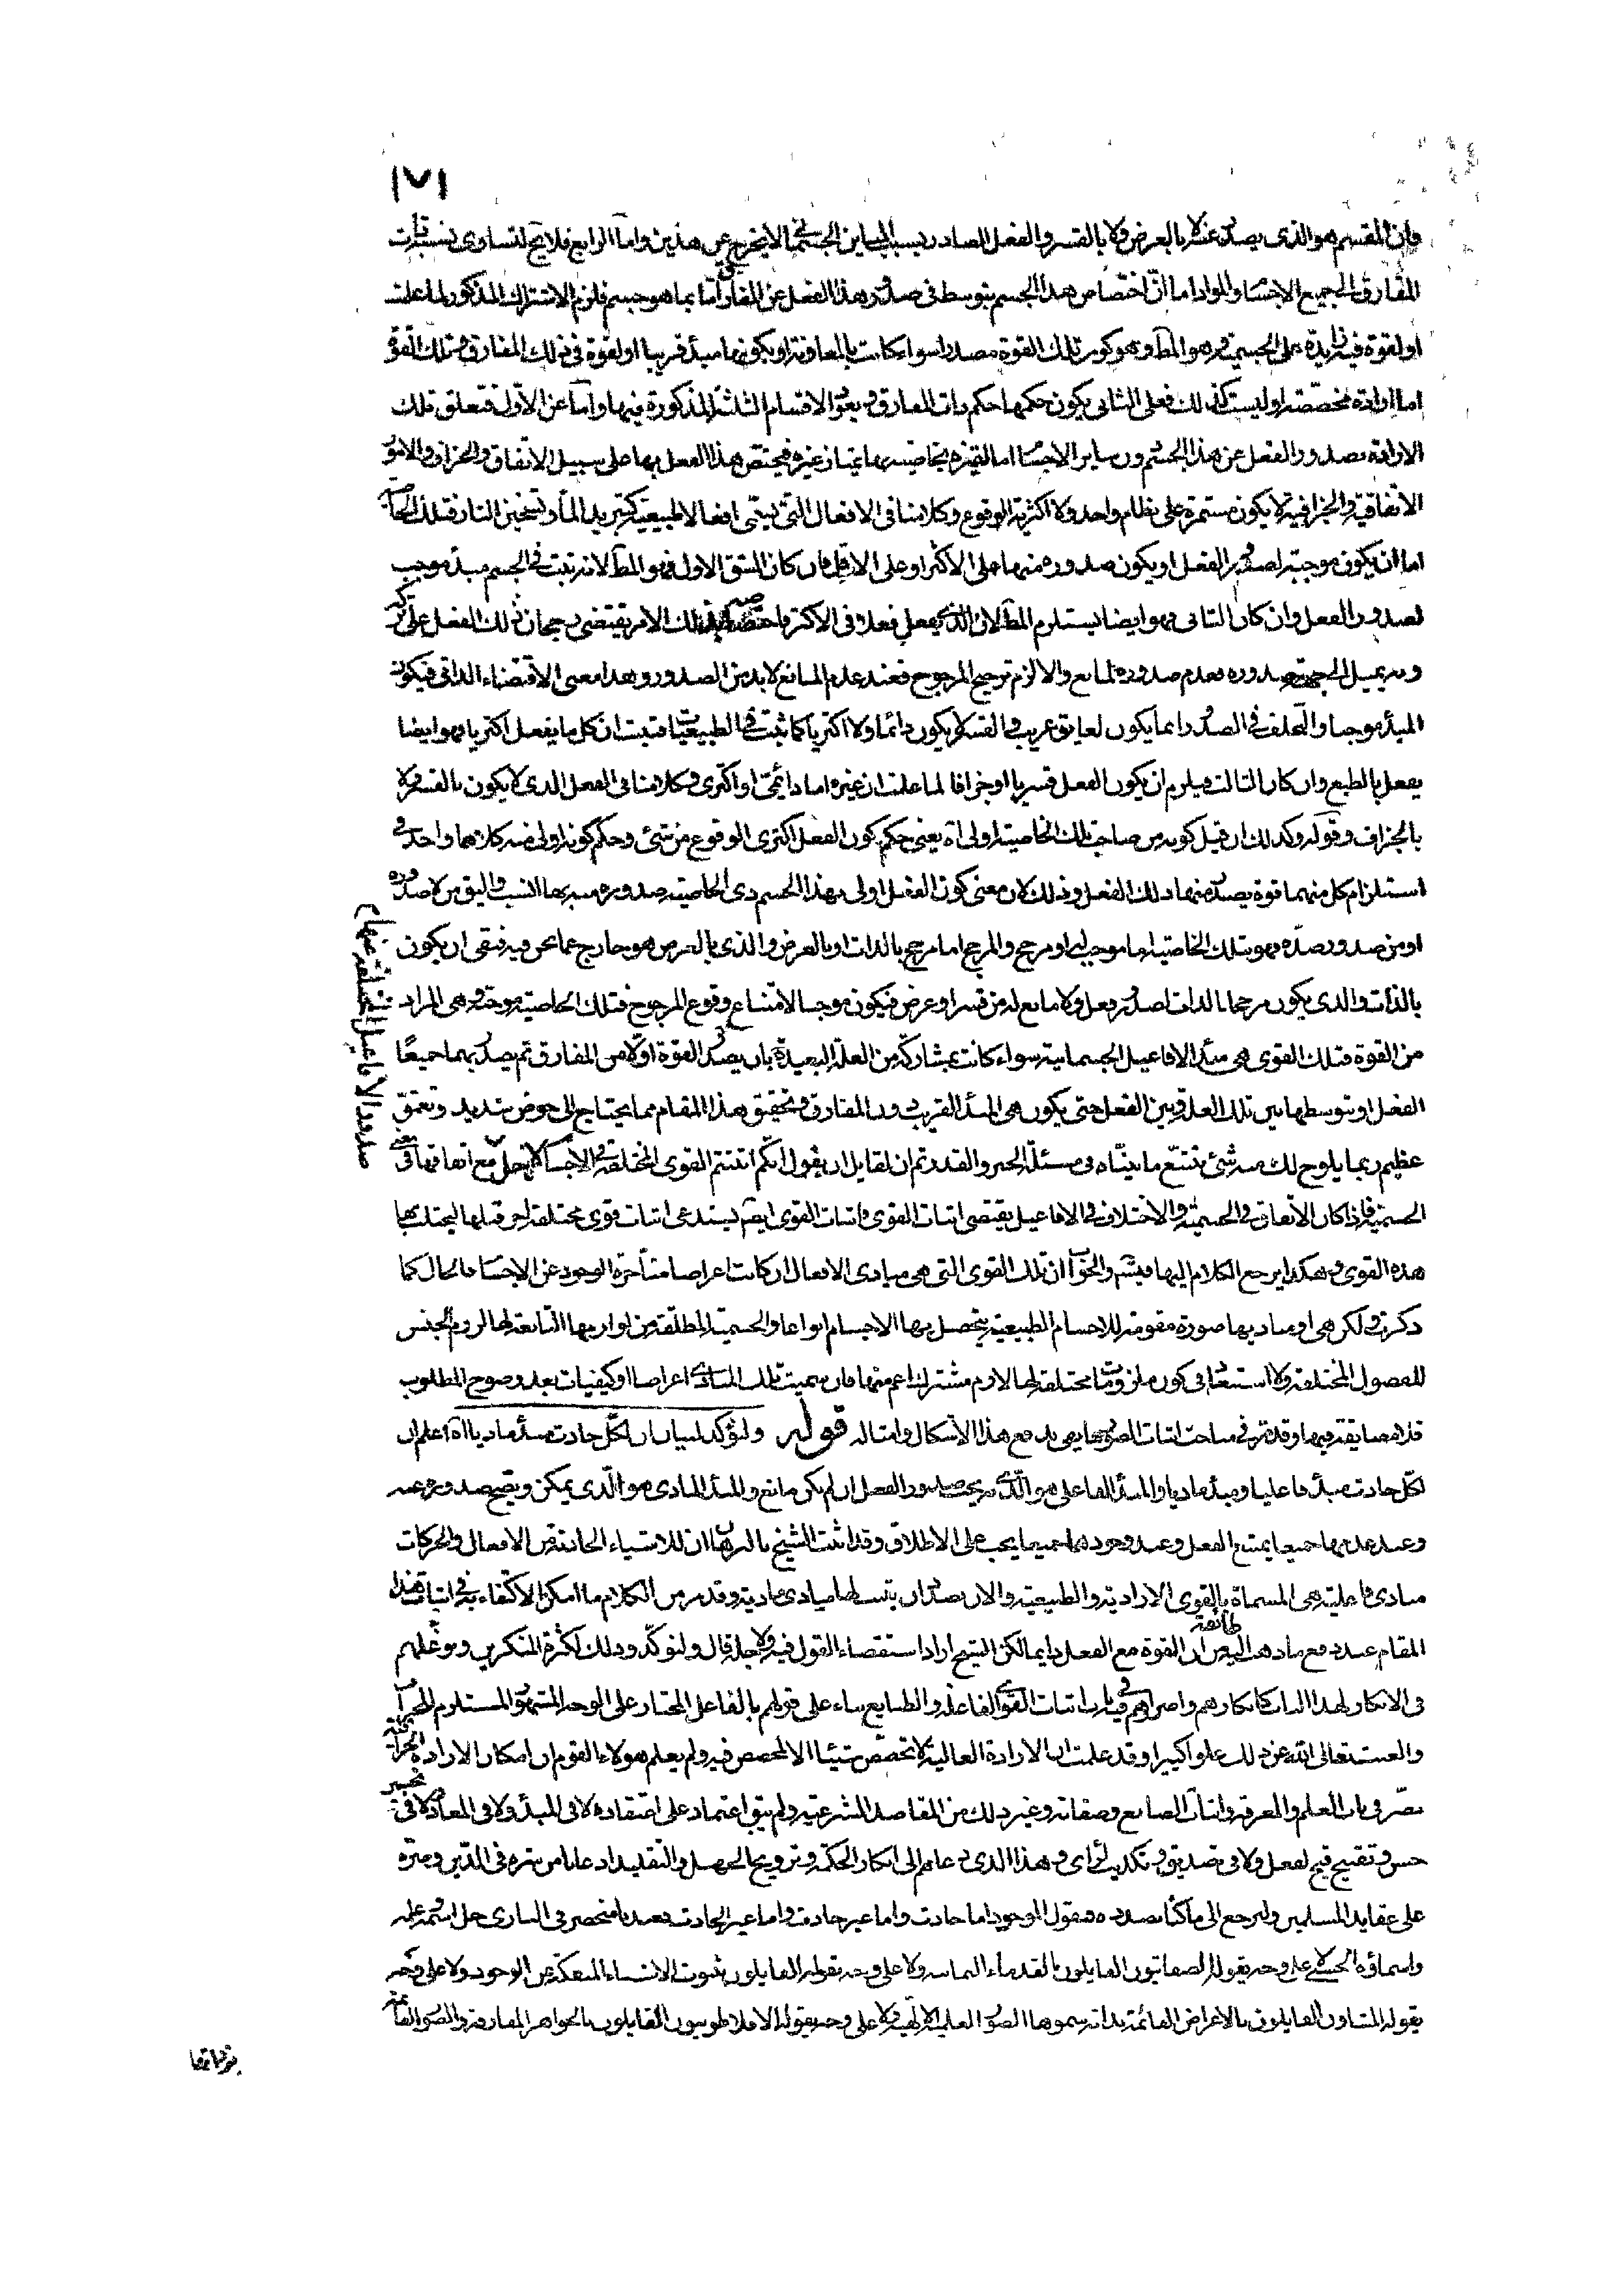 ١٧١
وان المقسم هو الذى يصدر عنه لا بالعرض ولا بالقسر والفعل الصادر بسبب المباين الجسمانى لا يخرج عن هذين واما الرابع فلا يصح لتساوى نسبة ذات
المفارق الى جميع الاجسام والمواد اما انّ اختصاص هذا الجسم بتوسط فى صدور هذا الفعل عن المفارق اما بما هو جسم فلزم الاشتراك المذكور لما علمت
او لقوة فيه زايدة على الجسمية وهو المط وهو كون تلك القوة مصدرا سواء كانت بالمعاونة او بكونها مبدء قريبا او لقوة فى ذلك المفارق وتلك القوة
اما ارادة مخصّصة او ليست كذلك فعلى الثانى يكون حكمها حكم ذات المفارق ويعود الاقسام الثلثة المذكورة فيها واما عن الاوّل فتعلق تلك
الارادة بصدور الفعل عن هذا الجسم دون ساير الاجسام اما لتميزه بخاصية بها يمتاز عن غيره فيختص هذا الفعل بها على سبيل الاتفاق والجزاف والامور
الاتفاقية والجزافية لا يكون مستمرة على نظام واحد ولا اكثرية الوقوع وكلامنا فى الافعال التى يسمّى افعالا طبيعية كتبريد الماء وتسخين النار فتلك الخاصية
اما ان يكون موجبة لصدور الفعل او يكون صدوره منها على الاكثر او على الاقل فان كان الشق الاول فهو المط لانه ثبت فى الجسم مبدء موجب
لصدور الفعل وان كان الثانى فهو ايضا يستلزم المط لان الذى يفعل فعلا فى الاكثر فاختصاصه بذلك الامر يقتضى رجحان ذلك الفعل على تركه
وبه يميل الى جهة صدوره فعدم صدوره لمانع والا لزم ترجيح المرجوح فعند عدم المانع لا بد من الصدور وهذا معنى الاقتضاء الذاتى فيكون
المبدء موجبا والتخلف فى الصدور انما يكون لعايق غريب والقسر لا يكون دائما ولا اكثريا كما ثبت فى الطبيعيات فثبت ان كل ما يفعل اكثريا فهو ايضا
يفعل بالطبع وان كان الثالث فيلزم ان يكون الفعل قسريا او جزافا لما علمت ان غيره اما دائمى او اكثرى وكلامنا فى الفعل الذى لا يكون بالقسر ولا
بالجزاف وقوله وكذلك ان قيل كونه من صاحب تلك الخاصية اولى اه يعنى حكم كون الفعل اكثرى الوقوع من شئ وحكم كونه اولى منه كلاهما واحد فى
استلزام كل منهما قوة يصدر منها ذلك الفعل وذلك لان معنى كون الفعل اولى بهذا الجسم ذى الخاصية صدوره منه بها انسب واليق من لا صدوره
او من صدور ضدّه فهو بتلك الخاصية اما موجب او مرجح والمرجح اما مرجح بالذات او بالعرض والذى بالعرض هو خارج عما نحن فيه فبقى ان يكون
بالذات والذى يكون مرجحا بالذات لصدور فعل ولا مانع له من قسر او عرض فيكون موجبا لامتناع وقوع المرجوح فتلك الخاصية موجبة وهى المراد
من القوة فتلك القوى هى مبدء الافاعيل الجسمانية سواء كانت بمشاركة من العلة البعيدة بان يصدر القوة اوّلا من المفارق ثم يصدر بهما جميعًا
الفعل او بتوسطها بين تلك العلة وبين الفعل حتى يكون هى المبدء القريب دون المفارق وتحقيق هذا المقام مما يحتاج الى خوض شديد وتعمّق
عظيم ربما يلوح لك منه شئ بتتبّع ما بيّناه فى مسئلة الجبر والقدر ثم ان لقايل ان يقول انكم اثبتتم القوى المختلفة فى الاجسام لاجل مع اتفاقها فى
صدور الافاعيل المختلفة عنها
الجسمية فاذا كان الاتفاق فى الجسمية والاختلاف فى الافاعيل يقتضى اثبات القوى فاثبات القوى ايضا يستدعى اثبات قوى مختلفة اخر قبلها ليختلف بها
هذه القوى وهكذا يرجع الكلام اليها فيتسلسل والجواب ان تلك القوى التى هى مبادى الافعال ان كانت اعراضا متأخرة الوجود عن الاجسام فالحال كما
ذكرت ولكن هى او مباديها صورة مقومة للاجسام الطبيعية يتحصل بها الاجسام انواعا والجسمية المطلقة من لوازمها التابعة لها لزوم الجنس
للفصول المختلفة ولا استبعاد فى كون ملزومات مختلفة لها لازم مشترك اعم منها فان سميت تلك المبادى اعراضا او كيفيات بعد وضوح المطلوب
فلا مضايقة فيها وقد مرّ فى مباحث اثبات الصور ما يندفع هذا الاشكال وامثاله قوله ولنؤكد لبيان ان لكل حادث مبدء ماديا اه اعلم ان
لكل حادث مبدء فاعليا ومبدء ماديا والمبدء الفاعلى هو الذى به يجب صدور الفعل ان لم يكن مانع والمبدء المادى هو الّذى يمكن ويصح صدوره عنه
وعند عدمهما جميعا يمتنع الفعل وعند وجودهما جميعا يجب على الاطلاق وقد اثبت الشيخ بالبرهان ان للاشياء الحادثة من الافعال والحركات
مبادى فاعلية هى المسماة بالقوى الارادية والطبيعية والان بصدد ان يثبت لها مبادى مادية وقد مر من الكلام ما امكن الاكتفاء به فى اثبات هذا
المقام عند دفع ما ذهب اليه طائفة من ان القوة مع الفعل دايما لكن الشيخ اراد استقصاء القول فيه ولاجله قال ولنؤكّد وذلك لكثرة المنكرين وتوغّلهم
فى الانكار لهذا الباب كانكارهم واصرارهم فى باب اثبات القوى الفاعلة والطبايع بناء على قولهم بالفاعل المختار على الوجه المشهور المستلزم للجزاف
والعبث تعالى الله عن ذلك علوا كبيرا وقد علمت ان الارادة العالية لا تخصّص شيئا الا لمخصص فيه ولم يعلم هولاء القوم ان امكان الارادة الجزافية
يضرّ فى باب العلم والمعرفة واثبات الصانع وصفاته وغير ذلك من المقاصد الشرعية ولم يبق اعتماد على اعتقاده لا فى المبدء ولا فى المعاد ولا فى تحسين
حسن وتقبيح قبيح لفعل ولا فى تصديق وتكذيب لرأى وهذا الذى دعاهم الى انكار الحكمة وترويج الجهل والتقليد ادعاءا من شره فى الدّين ومضرّة
على عقايد المسلمين ولنرجع الى ما كنّا بصدده فنقول الموجود اما حادث واما غير حادث واما غير الحادث فعندنا منحصر فى البارى جل اسمه وعلمه
واسماؤه الحسنى لا على وجه يقوله الصفاتيون القايلون بالقدماء الثمانية ولا على وجه يقوله القايلون بثبوت الاشياء المنفكة عن الوجود ولا على وجه
يقوله المشاؤن القايلون بالاعراض القائمة بذاته سموها الصور العلمية الالهية ولا على وجه يقوله الافلاطونيون القايلون بالجواهر المفارقة والصور القائمة
بذواتها